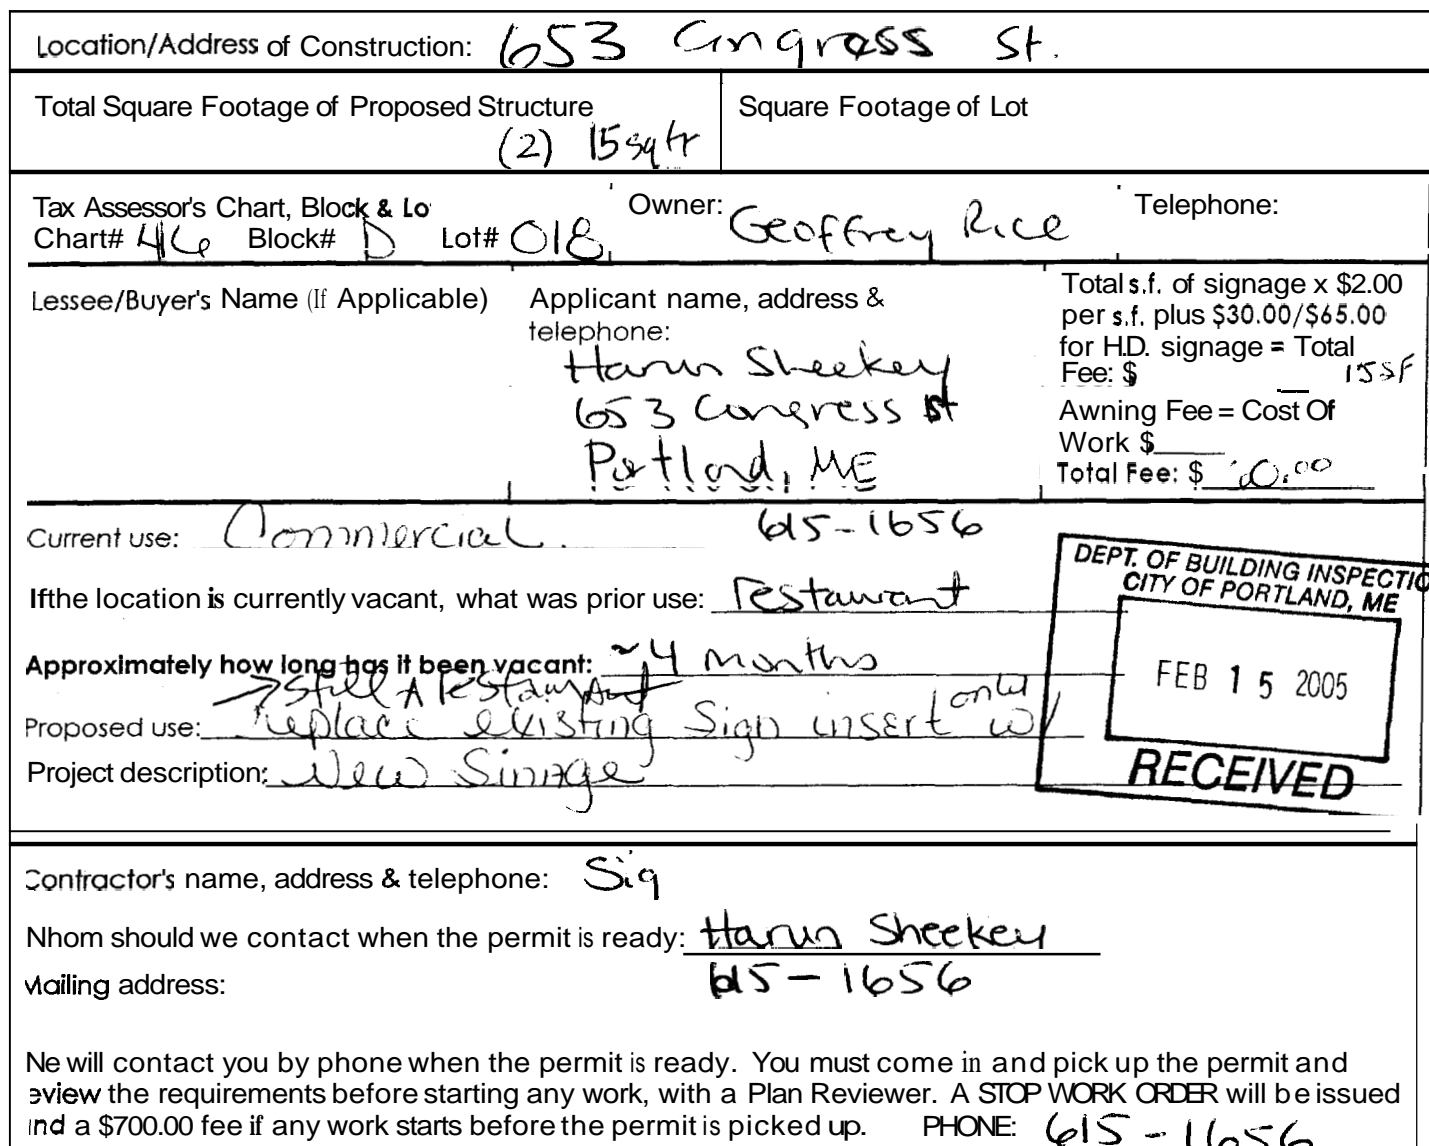 Location/Address of Construction: 653 Congress St.
Total Square Footage of Proposed Structure
(2) 15 sq ft
Square Footage of Lot
Tax Assessor's Chart, Block & Lo
Chart# 46 Block# D Lot# 018
Owner: Geoffrey Rice
Telephone:
Lessee/Buyer's Name (If Applicable)
Applicant name, address &
telephone:
Harun Sheekey
653 Congress St
Portland, ME
615-1656
Total s.f. of signage x $2.00
per s.f. plus $30.00/$65.00
for H.D. signage = Total
Fee: $ 15 SF
Awning Fee = Cost Of
Work $
Total Fee: $ 0.00
Current use: Commercial
If the location is currently vacant, what was prior use: restaurant
Approximately how long has it been vacant: ~4 months
→ Still A restaurant
Proposed use: replace existing Sign insert only w/
Project description: New Sinnge
DEPT. OF BUILDING INSPECTIO
CITY OF PORTLAND, ME
FEB 15 2005
RECEIVED
Contractor's name, address & telephone: Sig
Nhom should we contact when the permit is ready: Harun Sheekey
Mailing address: 615-1656
Ne will contact you by phone when the permit is ready. You must come in and pick up the permit and
eview the requirements before starting any work, with a Plan Reviewer. A STOP WORK ORDER will be issued
and a $700.00 fee if any work starts before the permit is picked up. PHONE: 615-1656